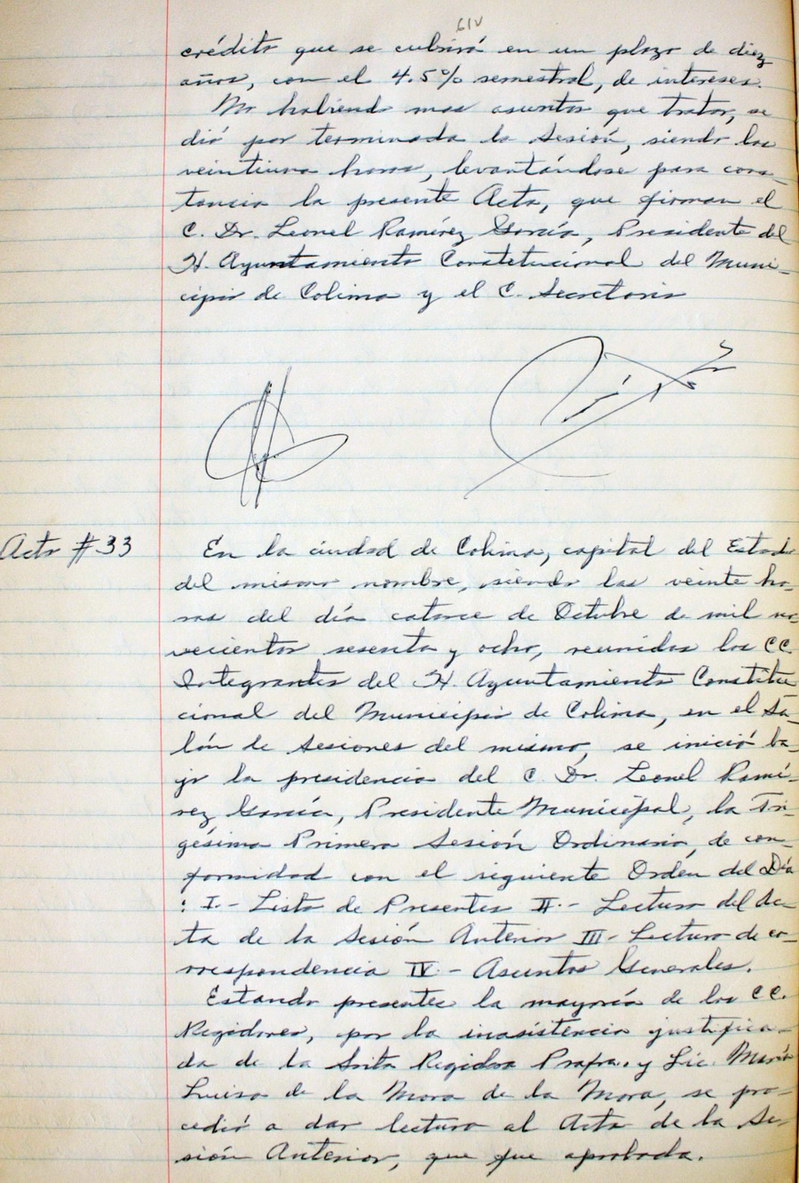 crédito que se cubrirá en un plazo de diez
años, con el 4.5% semestral, de intereses.
No habiend mas asuntos que tratar, se
dió por terminada la Sesión, siendo las
veintiuna horas, levantándose para cons-
tancia la presente Acta, que firman el
C. Dr. Leonel Ramírez García, Presidente del
H. Ayuntamiento Constitucional del Muni-
cipio de Colima y el C. Secretario
Acta #33
En la ciudad de Colima, capital del Estado
del mismo nombre, siendo las veinte ho-
ras del día catorce de Octubre de mil no-
vecientos sesenta y ocho, reunidos los CC.
Integrantes del H. Ayuntamiento Constitu-
cional del Municipio de Colima, en el Sa-
lón de Sesiones del mismo, se inició ba-
jo la presidencia del C Dr. Leonel Ramí-
rez García, Presidente Municipal, la Tri-
gésima Primera Sesión Ordinaria, de con-
formidad con el siguiente Orden del Día
: I.- Lista de Presentes II.- Lectura del Ac-
ta de la Sesión Anterior III- Lectura de co-
rrespondencia IV - Asuntos Generales.
Estando presentes la mayoría de los CC.
Regidores, por la inasistencia justifica-
da de la Srita Regidora Profra. y Lic. María
Luisa de la Mora de la Mora, se pro-
cedió a dar lectura al Acta de la Se-
sión Anterior, que fue aprobada.